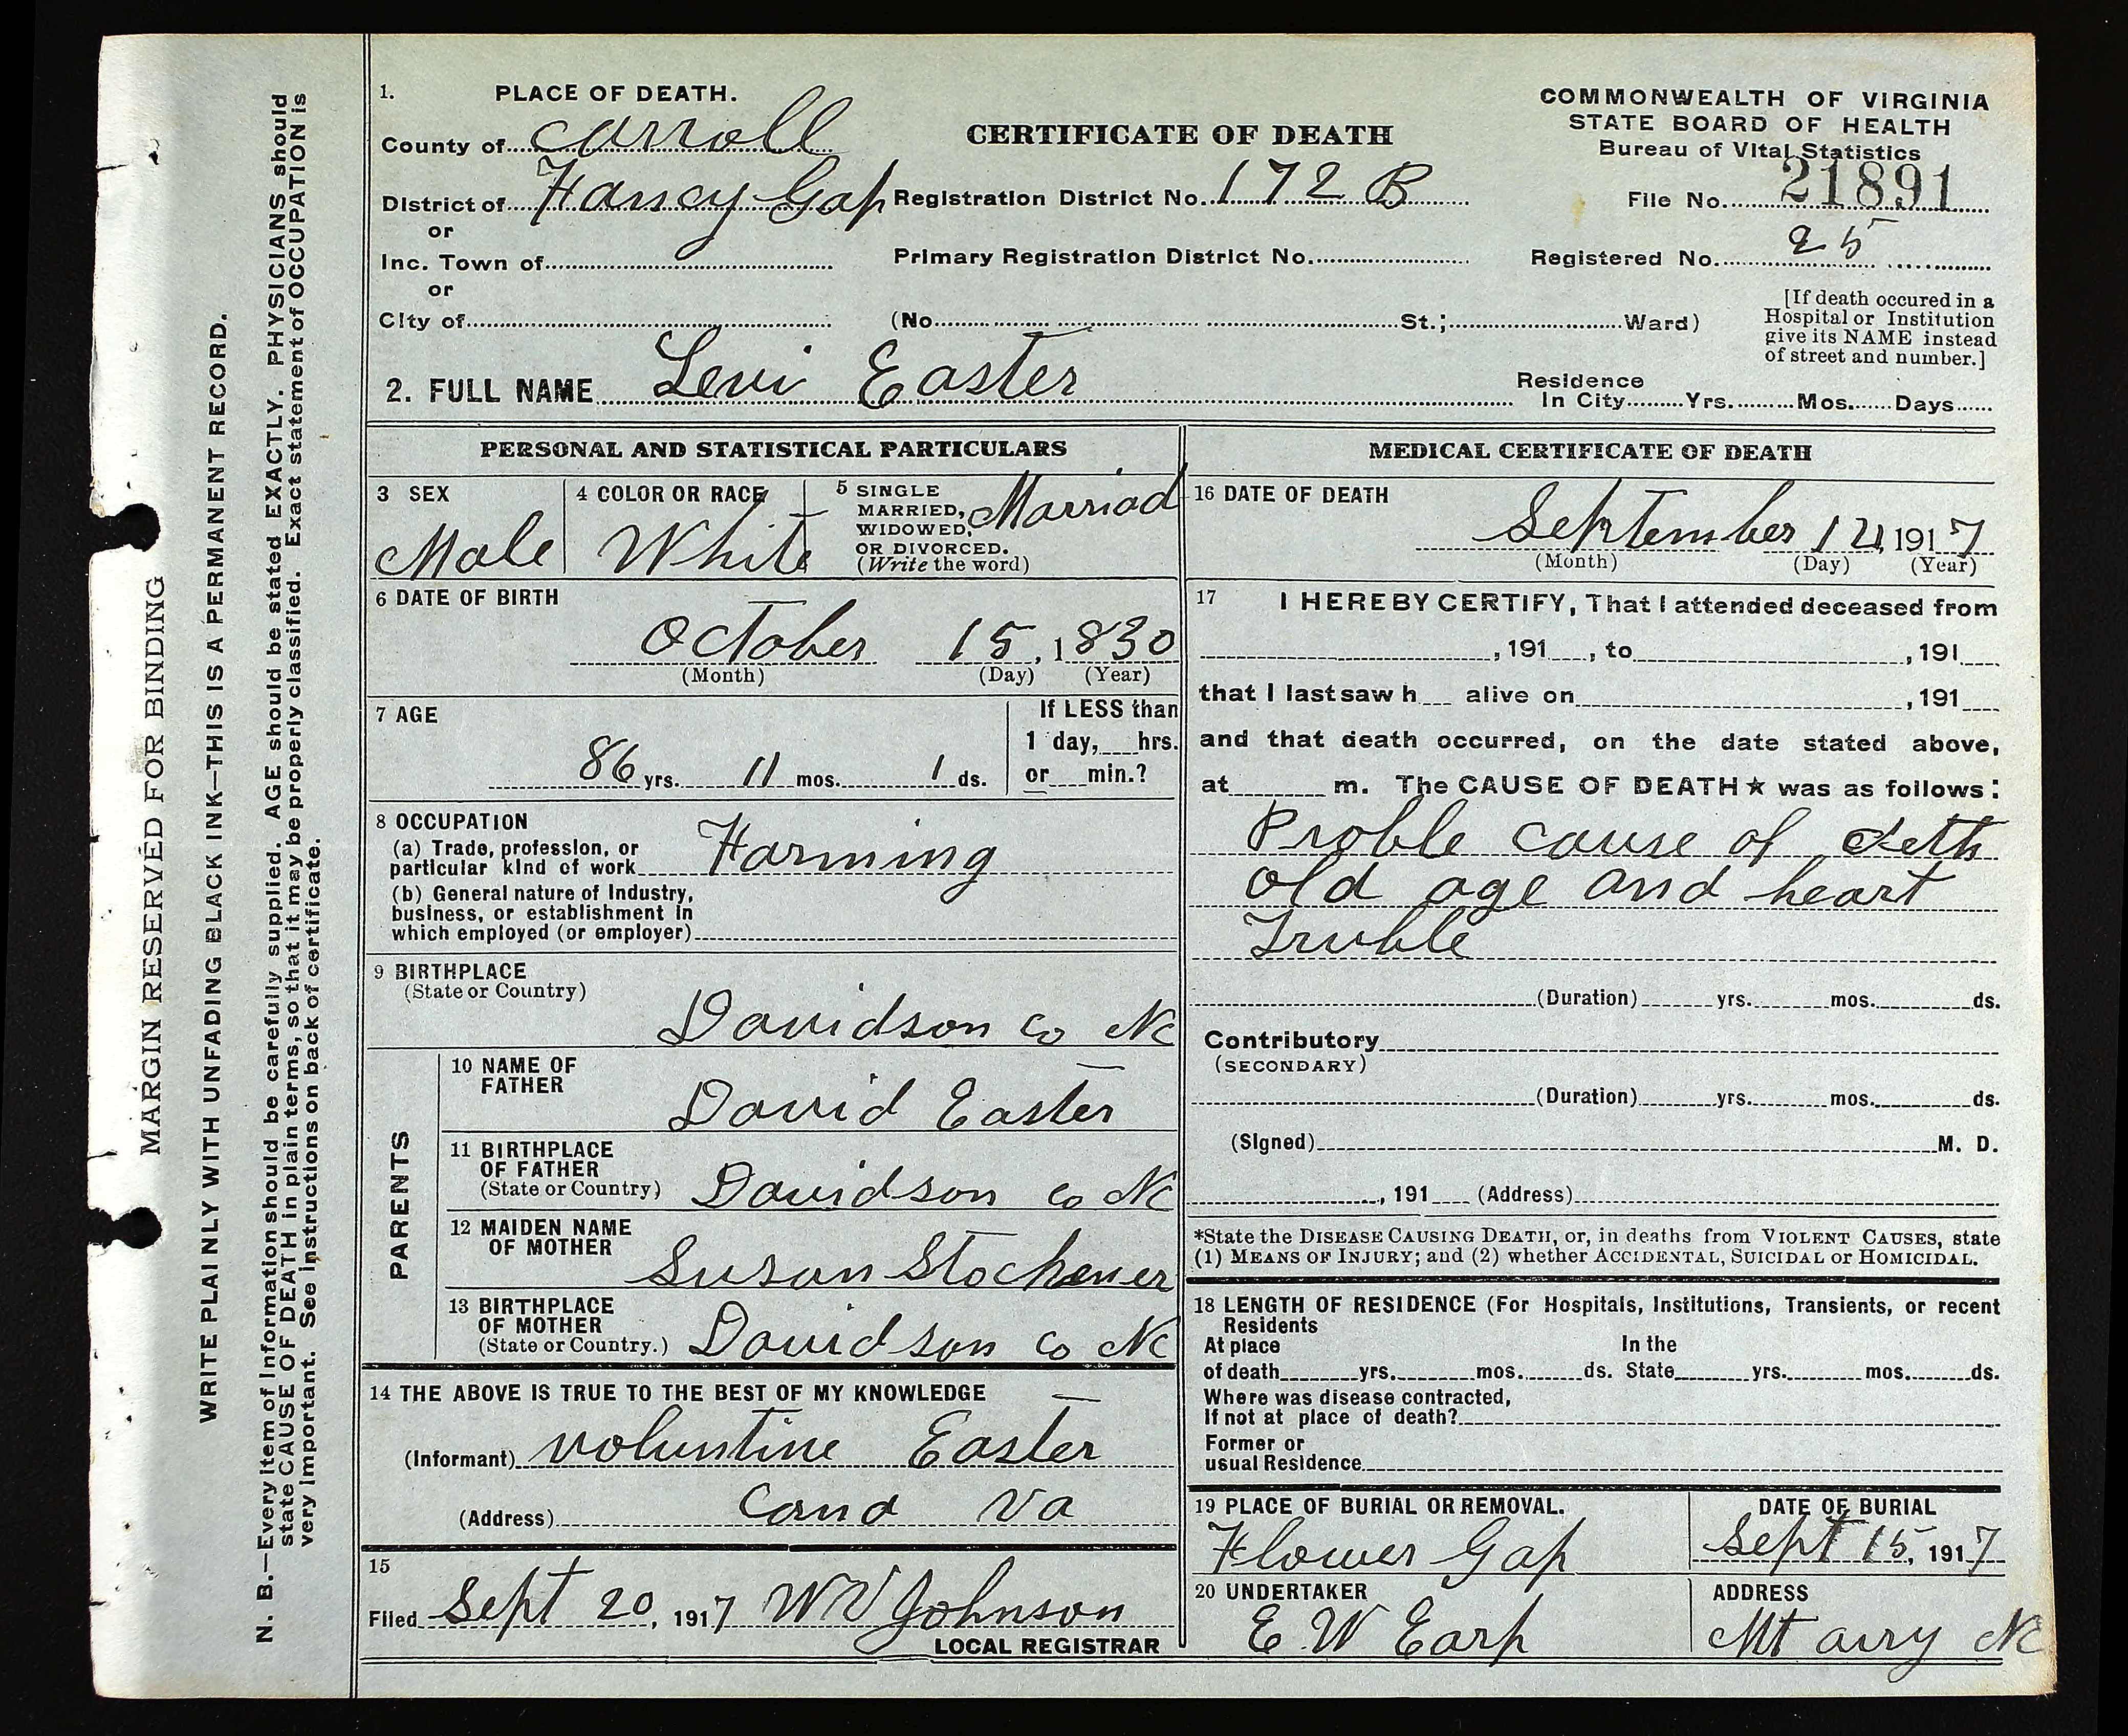 MARGIN RESERVED FOR BINDING
WRITE PLAINLY WITH UNFADING BLACK INK—THIS IS A PERMANENT RECORD.
N. B.—Every item of Information should be carefully supplied. AGE should be stated EXACTLY. PHYSICIANS should
state CAUSE OF DEATH in plain terms, so that it may be properly classified. Exact statement of OCCUPATION is
very important. See instructions on back of certificate.
1. PLACE OF DEATH.
County of Carroll
District of Fancy Gap
or
Inc. Town of
or
City of
CERTIFICATE OF DEATH
Registration District No. 172 B
Primary Registration District No.
(No. St.; Ward)
COMMONWEALTH OF VIRGINIA
STATE BOARD OF HEALTH
Bureau of Vital Statistics
File No. 21891
Registered No. 25
[If death occured in a
Hospital or Institution
give its NAME instead
of street and number.]
2. FULL NAME Levi Easter
Residence
In City Yrs. Mos. Days
PERSONAL AND STATISTICAL PARTICULARS
3 SEX
Male
4 COLOR OR RACE
White
5 SINGLE
MARRIED,
WIDOWED,
OR DIVORCED.
(Write the word)
Marriad
6 DATE OF BIRTH
October 15, 1830
(Month) (Day) (Year)
7 AGE
86 yrs. 11 mos. 1 ds.
If LESS than
1 day, hrs.
or min.?
8 OCCUPATION
(a) Trade, profession, or
particular kind of work Farming
(b) General nature of Industry,
business, or establishment in
which employed (or employer)
9 BIRTHPLACE
(State or Country)
Davidson Co NC
PARENTS
10 NAME OF
FATHER
David Easter
11 BIRTHPLACE
OF FATHER
(State or Country) Davidson Co NC
12 MAIDEN NAME
OF MOTHER
Susan
13 BIRTHPLACE
OF MOTHER
(State or Country.) Davidson Co NC
14 THE ABOVE IS TRUE TO THE BEST OF MY KNOWLEDGE
(Informant) Voluntine Easter
(Address) Cana Va
15
Filed Sept 20, 1917 W V Johnson
LOCAL REGISTRAR
MEDICAL CERTIFICATE OF DEATH
16 DATE OF DEATH
September 1917
(Month) (Day) (Year)
17 I HEREBY CERTIFY, That I attended deceased from
, 191 , to , 191
that I last saw h alive on , 191
and that death occurred, on the date stated above,
at m. The CAUSE OF DEATH★ was as follows:
Proble cause of deth
old age and heart
Truble
(Duration) yrs. mos. ds.
Contributory
(SECONDARY)
(Duration) yrs. mos. ds.
(Signed) M. D.
, 191 (Address)
*State the DISEASE CAUSING DEATH, or, in deaths from VIOLENT CAUSES, state
(1) MEANS OF INJURY; and (2) whether ACCIDENTAL, SUICIDAL or HOMICIDAL.
18 LENGTH OF RESIDENCE (For Hospitals, Institutions, Transients, or recent
Residents
At place In the
of death yrs. mos. ds. State yrs. mos. ds.
Where was disease contracted,
If not at place of death?
Former or
usual Residence
19 PLACE OF BURIAL OR REMOVAL.
Flower Gap
DATE OF BURIAL
Sept 15, 1917
20 UNDERTAKER
E W Earp
ADDRESS
Mt airy NC